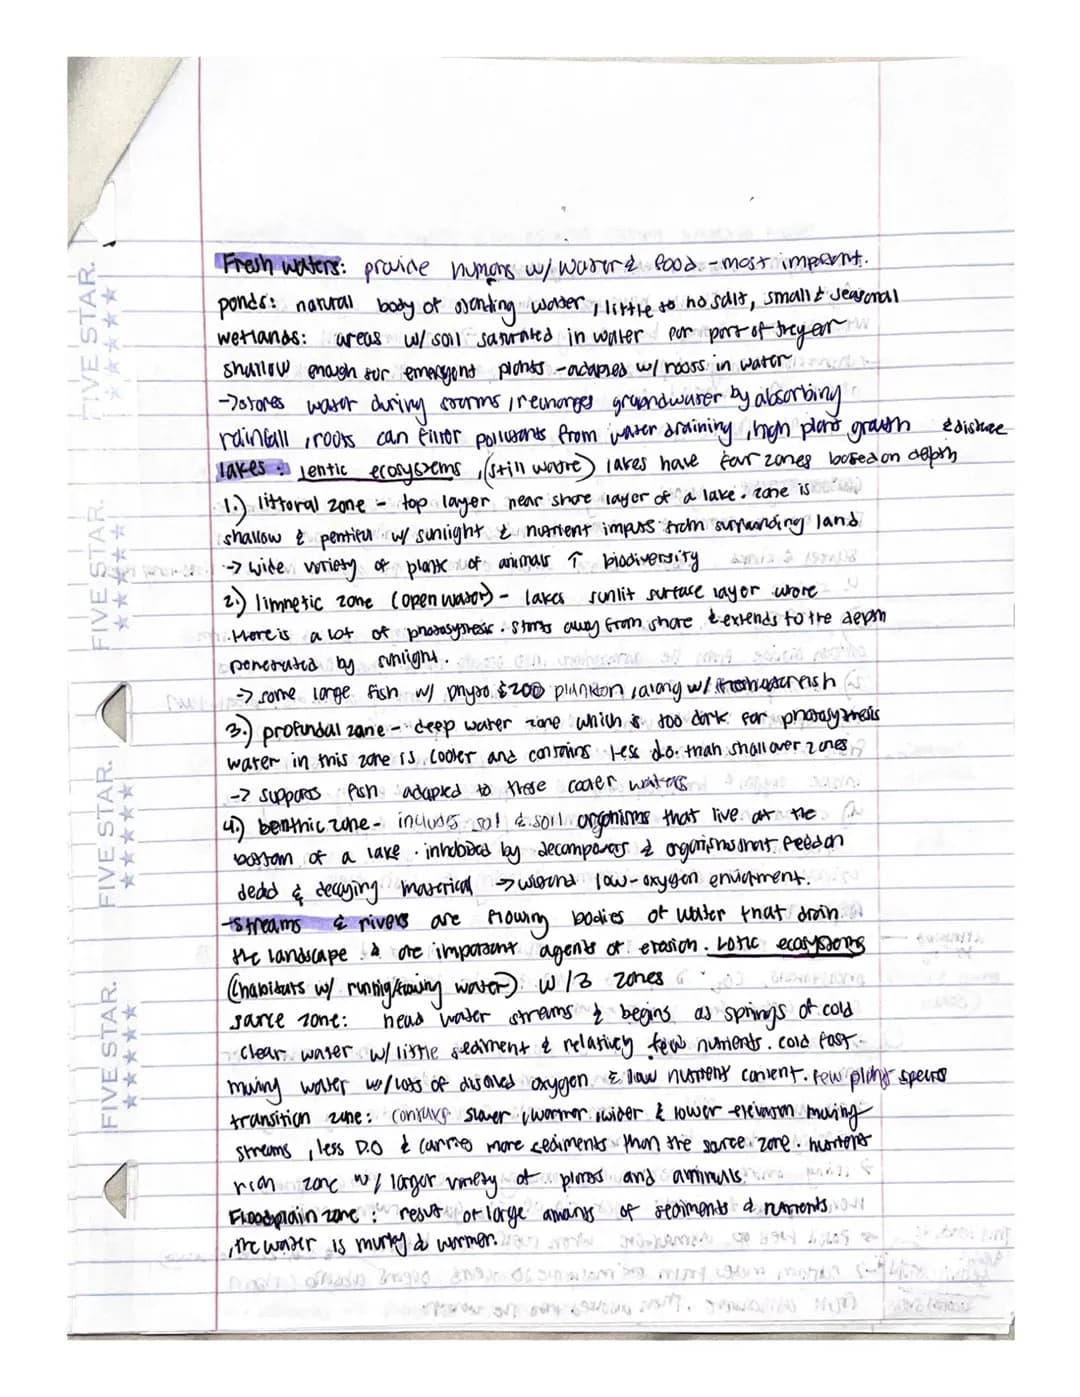 Fresh waters: provide humans w/ water & food - most import.
ponds: natural body of standing water, little to no salt, small & seasonal
wetlands: areas w/ soil saturated in water for part of the year
shallow enough for emergent plants - adapted w/ roots in water
-> stores water during storms, recharges groundwater by absorbing
rainfall, roots can filter pollutants from water draining, high plant growth & distree
lakes: lentic ecosystems, (still water) lakes have four zones based on depth
1.) littoral zone - top layer near shore layer of a lake. zone is
shallow & pentiful w/ sunlight & nutrient inputs from surrounding land
-> wide variety of plant of animals ↑ biodiversity
2.) limnetic zone (open water) - lakes sunlit surface layer were
there is a lot of photosythesis. starts away from shore & extends to the depth
penetrated by sunlight.
-> some large fish w/ phyto & zoo plankton, along w/ freshwater fish
3.) profundal zone - deep water zone which is too dark for photosythesis
water in this zone is cooler and contains less d.o. than shallower zones
-> supports fish adapted to these cooler waters
4.) benthic zone - includes soil & soil organisms that live at the
bottom of a lake. inhabited by decomposers & organisms that feed on
dead & decaying material -> low-oxygen enviornment.
- streams & rivers are flowing bodies of water that drain
the landscape & are important agents of erosion. Lotic ecosystems
(habitats w/ running/flowing water) w/ 3 zones
sarce zone: head water streams & begins as springs of cold
clear water w/ little sediment & relatively few nutrients. cold fast-
moving water w/ lots of disolved oxygen & low nutrient content. few plant species
transition zone: contains slower, warmer, wider & lower-elevation moving
streams, less D.O & carries more sediments than the sarce zone. nutrient
rich zone w/ larger variety of plants and animals.
Floodplain zone: result of large amounts of sediments & nutrients
, the water is murky & warmer.
FIVE STAR.
FIVE STAR.
FIVE STAR.
FIVE STAR.